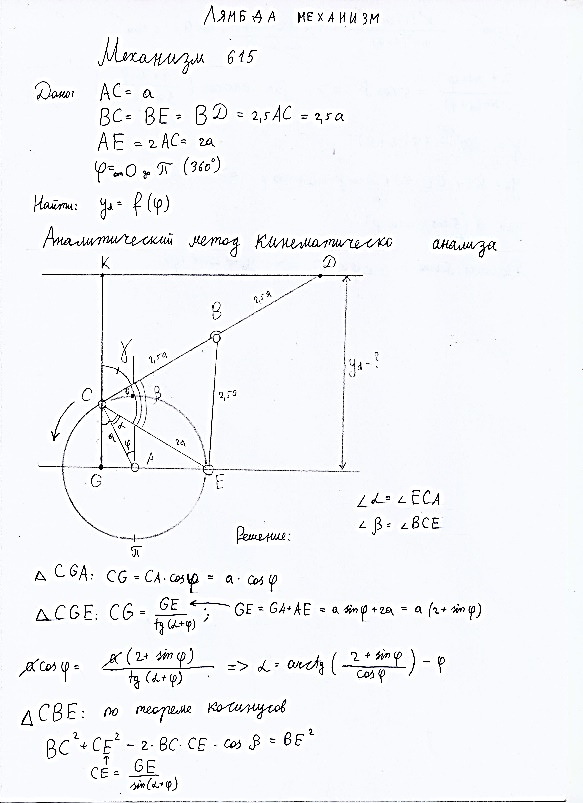 ЛЯМБДА МЕХАНИЗМ
Механизм 615
Дано: AC = a
BC = BE = BD = 2,5AC = 2,5a
AE = 2AC = 2a
φ = от 0 до π (360°)
Найти: y₁ = f(φ)
Аналитический метод кинематическо анализа
K D
2,5a
B
γ 2,5a
y₁ - ?
C 0 β 2,5a
a α φ 2a
G A E
π
∠α = ∠ECA
∠β = ∠BCE
Решение:
△ CGA: CG = CA·cosφ = a·cosφ
△ CGE: CG = GE / tg(α+φ) ; GE = GA + AE = a sinφ + 2a = a(2 + sinφ)
a cosφ = a(2 + sinφ) / tg(α+φ) => α = arctg( (2 + sinφ) / cosφ ) − φ
△ CBE: по теореме косинусов
BC² + CE² − 2·BC·CE·cos β = BE²
CE = GE / sin(α+φ)